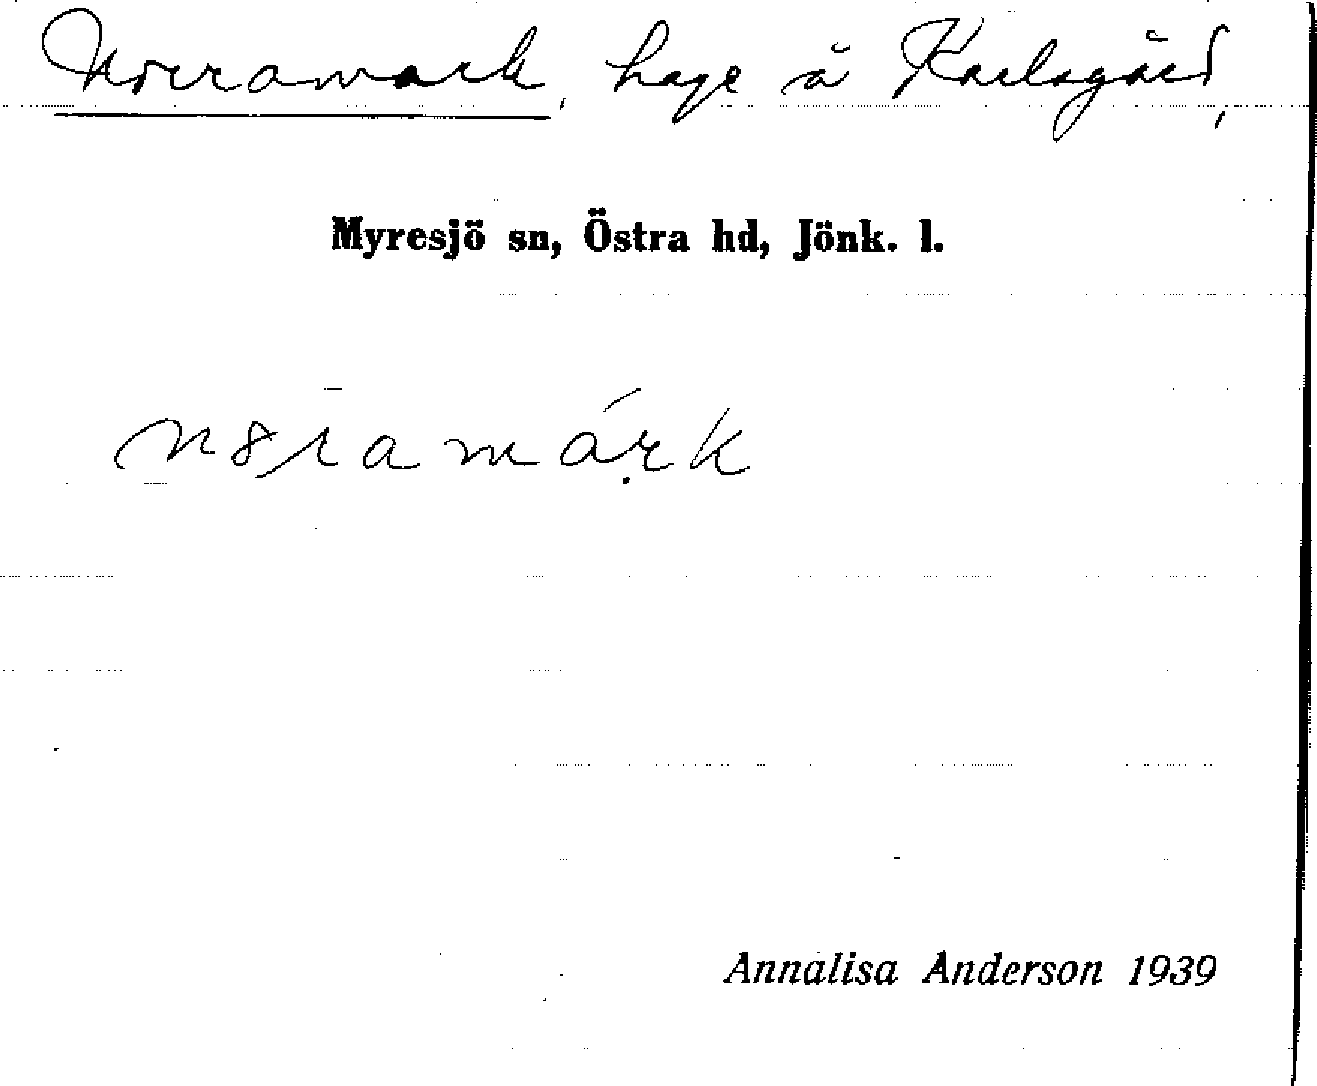 Norramark, hage å Karlsgård,
Myresjö sn, Östra hd, Jönk. l.
n8ramárk
Annalisa Anderson 1939